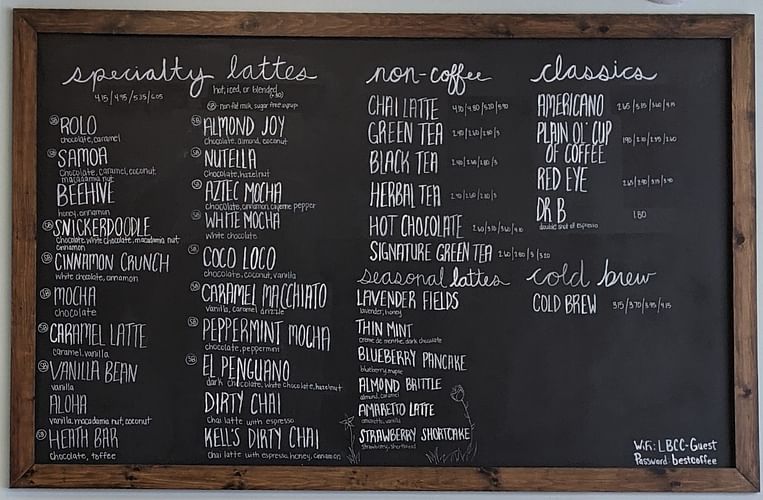 specialty lattes
hot, iced, or blended
non-fat milk, sugar free syrup
ROLO
chocolate, caramel
SAMOA
chocolate, caramel, coconut,
macadamia nut
BEEHIVE
honey, cinnamon
SNICKERDOODLE
chocolate, white chocolate, macadamia nut
cinnamon
CINNAMON CRUNCH
white chocolate, cinnamon
MOCHA
chocolate
CARAMEL LATTE
caramel, vanilla
VANILLA BEAN
vanilla
ALOHA
vanilla, macadamia nut, coconut
HEATH BAR
chocolate, toffee
ALMOND JOY
chocolate, almond, coconut
NUTELLA
chocolate, hazelnut
AZTEC MOCHA
chocolate, cinnamon, cayenne pepper
WHITE MOCHA
white chocolate
COCO LOCO
chocolate, coconut, vanilla
CARAMEL MACCHIATO
vanilla, caramel drizzle
PEPPERMINT MOCHA
chocolate, peppermint
EL PENGUANO
dark chocolate, white chocolate, hazelnut
DIRTY CHAI
chai latte with espresso
KELL'S DIRTY CHAI
chai latte with espresso, honey, cinnamon
non-coffee
CHAI LATTE
GREEN TEA
BLACK TEA
HERBAL TEA
HOT CHOCOLATE
SIGNATURE GREEN TEA
seasonal lattes
LAVENDER FIELDS
lavender, honey
THIN MINT
creme de menthe, dark chocolate
BLUEBERRY PANCAKE
blueberry, maple
ALMOND BRITTLE
almond, caramel
AMARETTO LATTE
amaretto, vanilla
STRAWBERRY SHORTCAKE
strawberry, shortbread
classics
AMERICANO
PLAIN OL' CUP
OF COFFEE
RED EYE
DR B 1.80
double shot of espresso
cold brew
COLD BREW 3.15/3.70/3.95/4.15
WiFi: LBCC-Guest
Password: bestcoffee